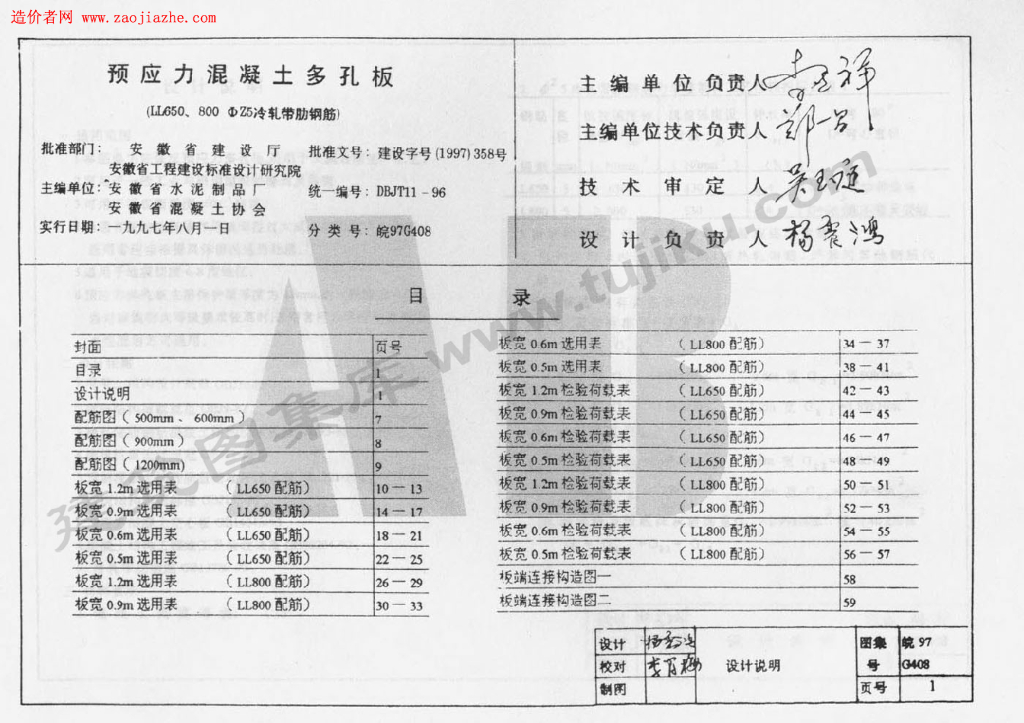 造价者网 www.zaojiazhe.com
预应力混凝土多孔板
(LL650、800 ΦZ5冷轧带肋钢筋)
批准部门： 安徽省建设厅 批准文号：建设字号(1997)358号
安徽省工程建设标准设计研究院
主编单位：安徽省水泥制品厂 统一编号：DBJT11-96
安徽省混凝土协会
实行日期：一九九七年八月一日 分类号：皖97G408
主编单位负责人
主编单位技术负责人
技术审定人
设计负责人 杨震鸿
目录
封面 页号
目录 1
设计说明 1
配筋图(500mm、600mm) 7
配筋图(900mm) 8
配筋图(1200mm) 9
板宽1.2m选用表 (LL650配筋) 10—13
板宽0.9m选用表 (LL650配筋) 14—17
板宽0.6m选用表 (LL650配筋) 18—21
板宽0.5m选用表 (LL650配筋) 22—25
板宽1.2m选用表 (LL800配筋) 26—29
板宽0.9m选用表 (LL800配筋) 30—33
板宽0.6m选用表 (LL800配筋) 34—37
板宽0.5m选用表 (LL800配筋) 38—41
板宽1.2m检验荷载表 (LL650配筋) 42—43
板宽0.9m检验荷载表 (LL650配筋) 44—45
板宽0.6m检验荷载表 (LL650配筋) 46—47
板宽0.5m检验荷载表 (LL650配筋) 48—49
板宽1.2m检验荷载表 (LL800配筋) 50—51
板宽0.9m检验荷载表 (LL800配筋) 52—53
板宽0.6m检验荷载表 (LL800配筋) 54—55
板宽0.5m检验荷载表 (LL800配筋) 56—57
板端连接构造图一 58
板端连接构造图二 59
建筑图集库 www.tujiku.com
设计
校对
制图
设计说明
图集号 皖97 G408
页号 1